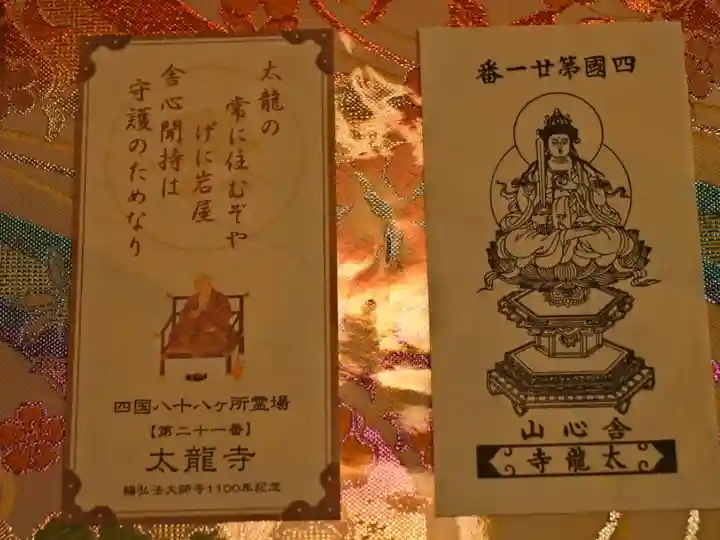 太龍の
常に住むぞや
げに岩屋
舎心聞持は
守護のためなり
四国八十八ヶ所霊場
【第二十一番】
太龍寺
賜弘法大師号1100年記念
番一廿第國四
山心舎
寺龍太